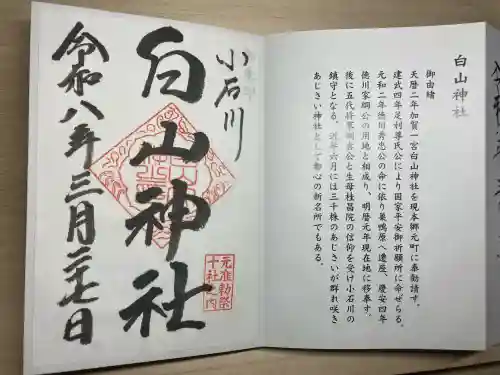 白山神社
御由緒
天暦二年加賀一宮白山神社を現本郷元町に奉勧請す。
建武四年足利尊氏公により国家平安御祈願所に命ぜらる。
元和二年徳川秀忠公の命に依り巣鴨原へ遷座、慶安四年
徳川家綱公の用地と相成り、明暦元年現在地に移奉す。
後に五代将軍綱吉公と生母桂昌院の信仰を受け小石川の
鎮守となる。近年六月には三千株のあじさいが群れ咲き
あじさい神社として都心の新名所でもある。
小石川
白山神社
元准勅祭
十社之内
令和八年三月二七日